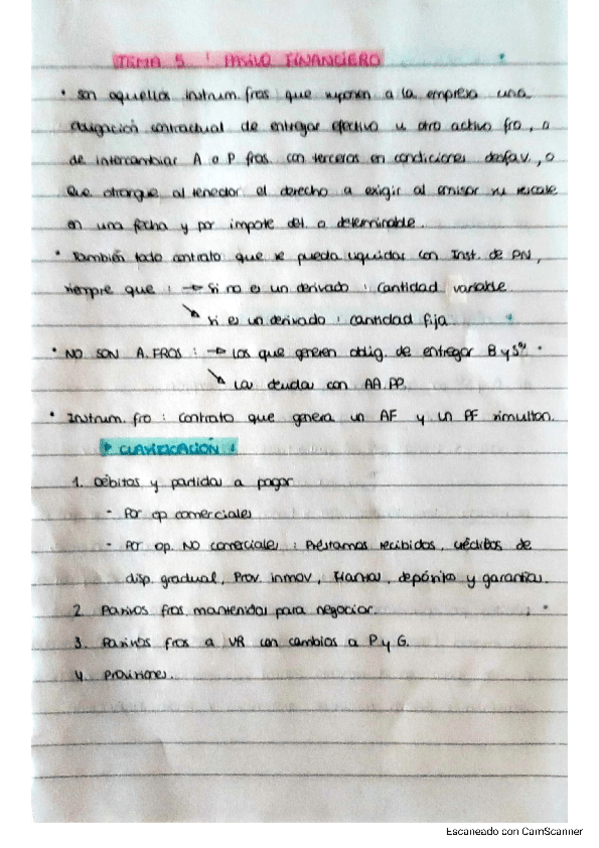 TEMA 5 : PASIVO FINANCIERO
• Son aquellos instrum. fros que suponen a la empresa una
obligación contractual de entregar efectivo u otro activo fro, o
de intercambiar A o P fros. con terceros en condiciones desfav., o
que otorgue al tenedor el derecho a exigir al emisor su rescate
en una fecha y por importe det. o determinable.
• También todo contrato que se pueda liquidar con Inst. de PN,
siempre que : → Si no es un derivado : cantidad variable
↘ si es un derivado : cantidad fija
• NO SON A. FROS : → Los que generen oblig. de entregar B y Sº
↘ Las deudas con AA.PP.
• Instrum. fro : contrato que genera un AF y un PF simultan.
CLASIFICACIÓN :
1. Débitos y partidas a pagar
- Por op comerciales
- Por op. NO comerciales : Préstamos recibidos, créditos de
disp. gradual, Prov. inmov, Fianzas, depósitos y garantías.
2. Pasivos fros. mantenidos para negociar.
3. Pasivos fros a VR con cambios a P y G.
4. Provisiones.
Escaneado con CamScanner